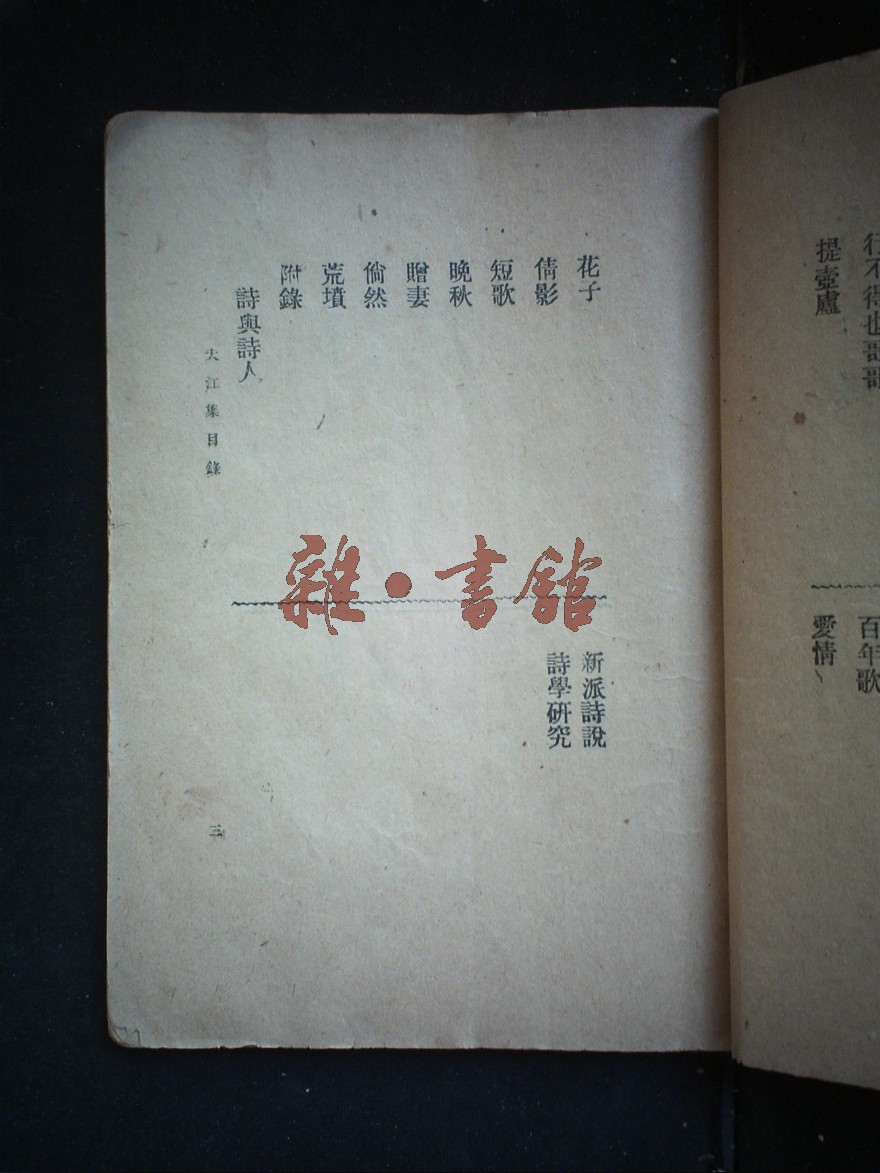 行不得也哥哥
提壺盧
百年歌
愛情
花子
倩影
短歌
晚秋
贈妻
倘然
荒墳
附錄
詩與詩人
新派詩說
詩學研究
大江集目錄
三
雜·書館